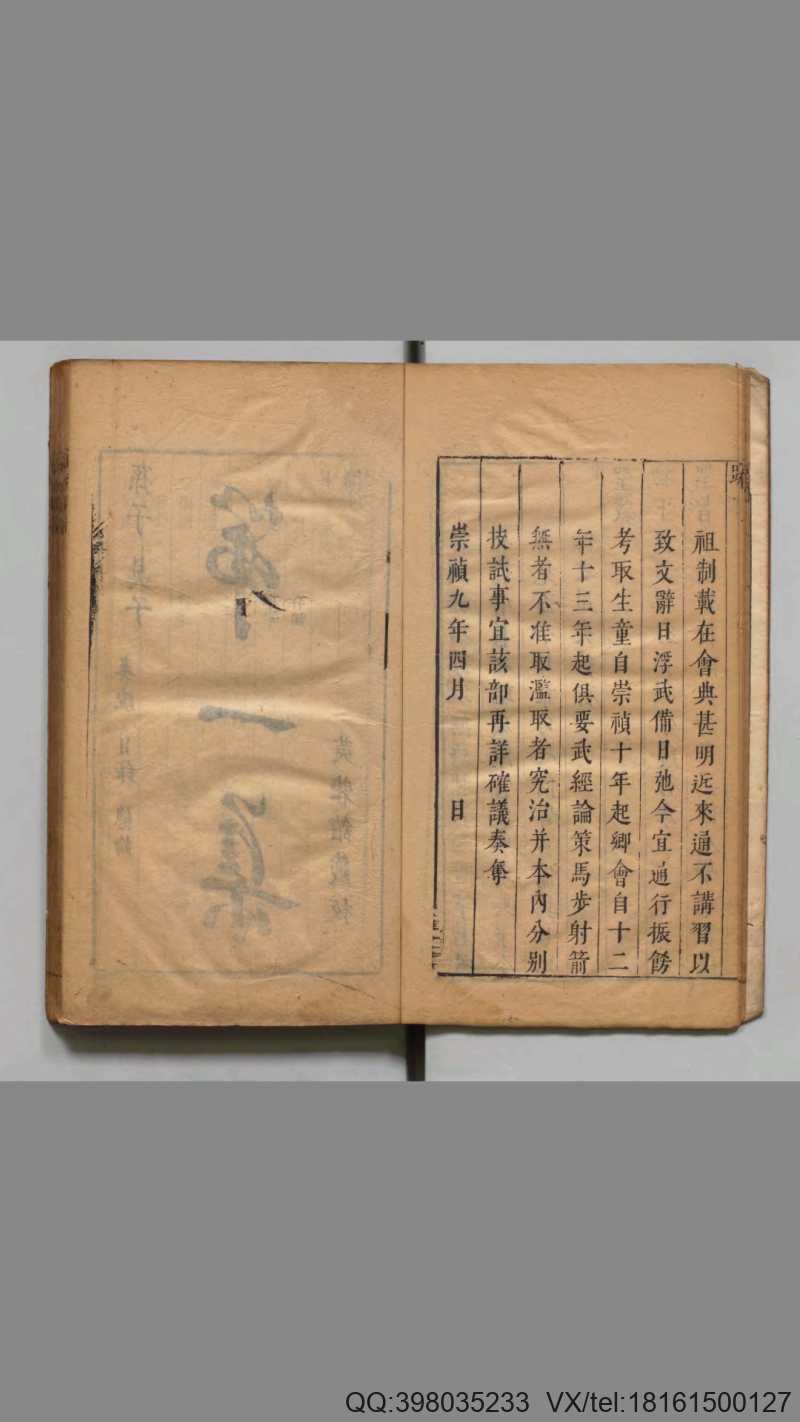 疏
祖制載在會典甚明近來通不講習以
致文辭日浮武備日弛今宜通行振飭
考取生童自崇禎十年起鄉會自十二
年十三年起俱要武經論策馬步射箭
無者不准取濫取者究治并本內分别
技試事宜該部再詳確議奏奪
崇禎九年四月 日
第一集
孫子 吳子
QQ:398035233 VX/tel:18161500127